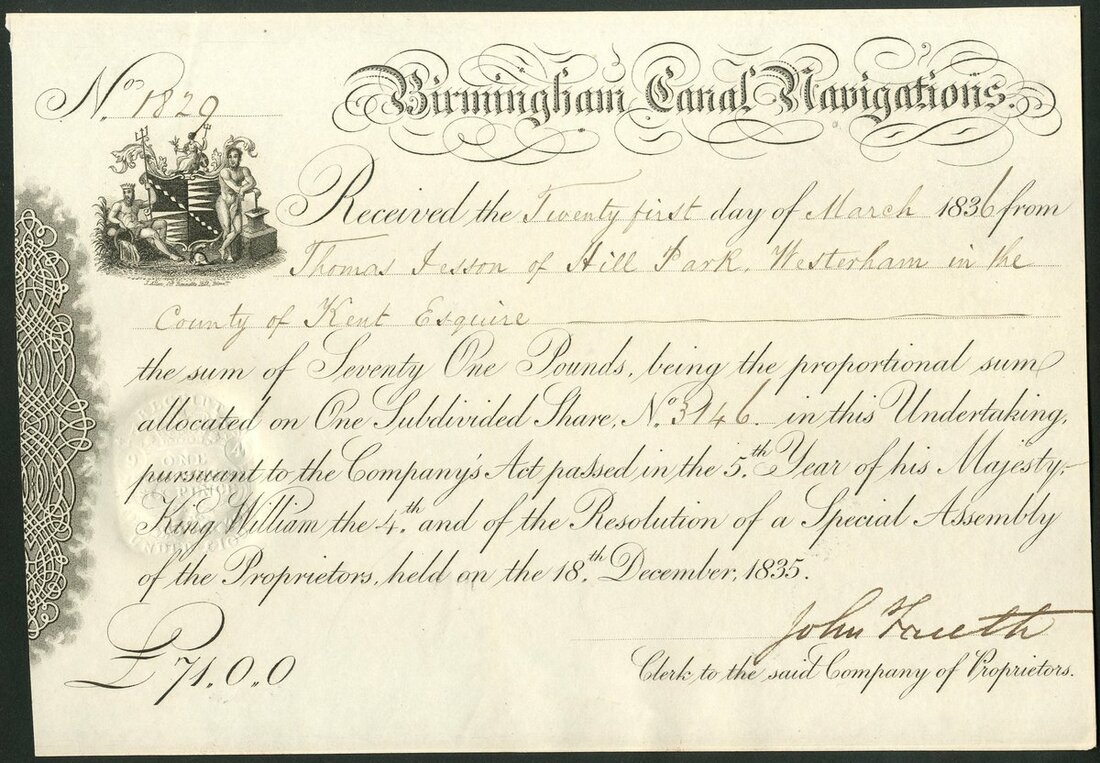 No. 1829
Birmingham Canal Navigations.
Received the Twenty first day of March 1836 from
Thomas Jesson of Hill Park, Westerham in the
County of Kent Esquire
the sum of Seventy One Pounds, being the proportional sum
allocated on One Subdivided Share, No. 3146 in this Undertaking,
pursuant to the Company's Act passed in the 5.th Year of his Majesty
King William the 4.th and of the Resolution of a Special Assembly
of the Proprietors, held on the 18.th December, 1835.
£71.0.0
John Freeth
Clerk to the said Company of Proprietors.
ONE